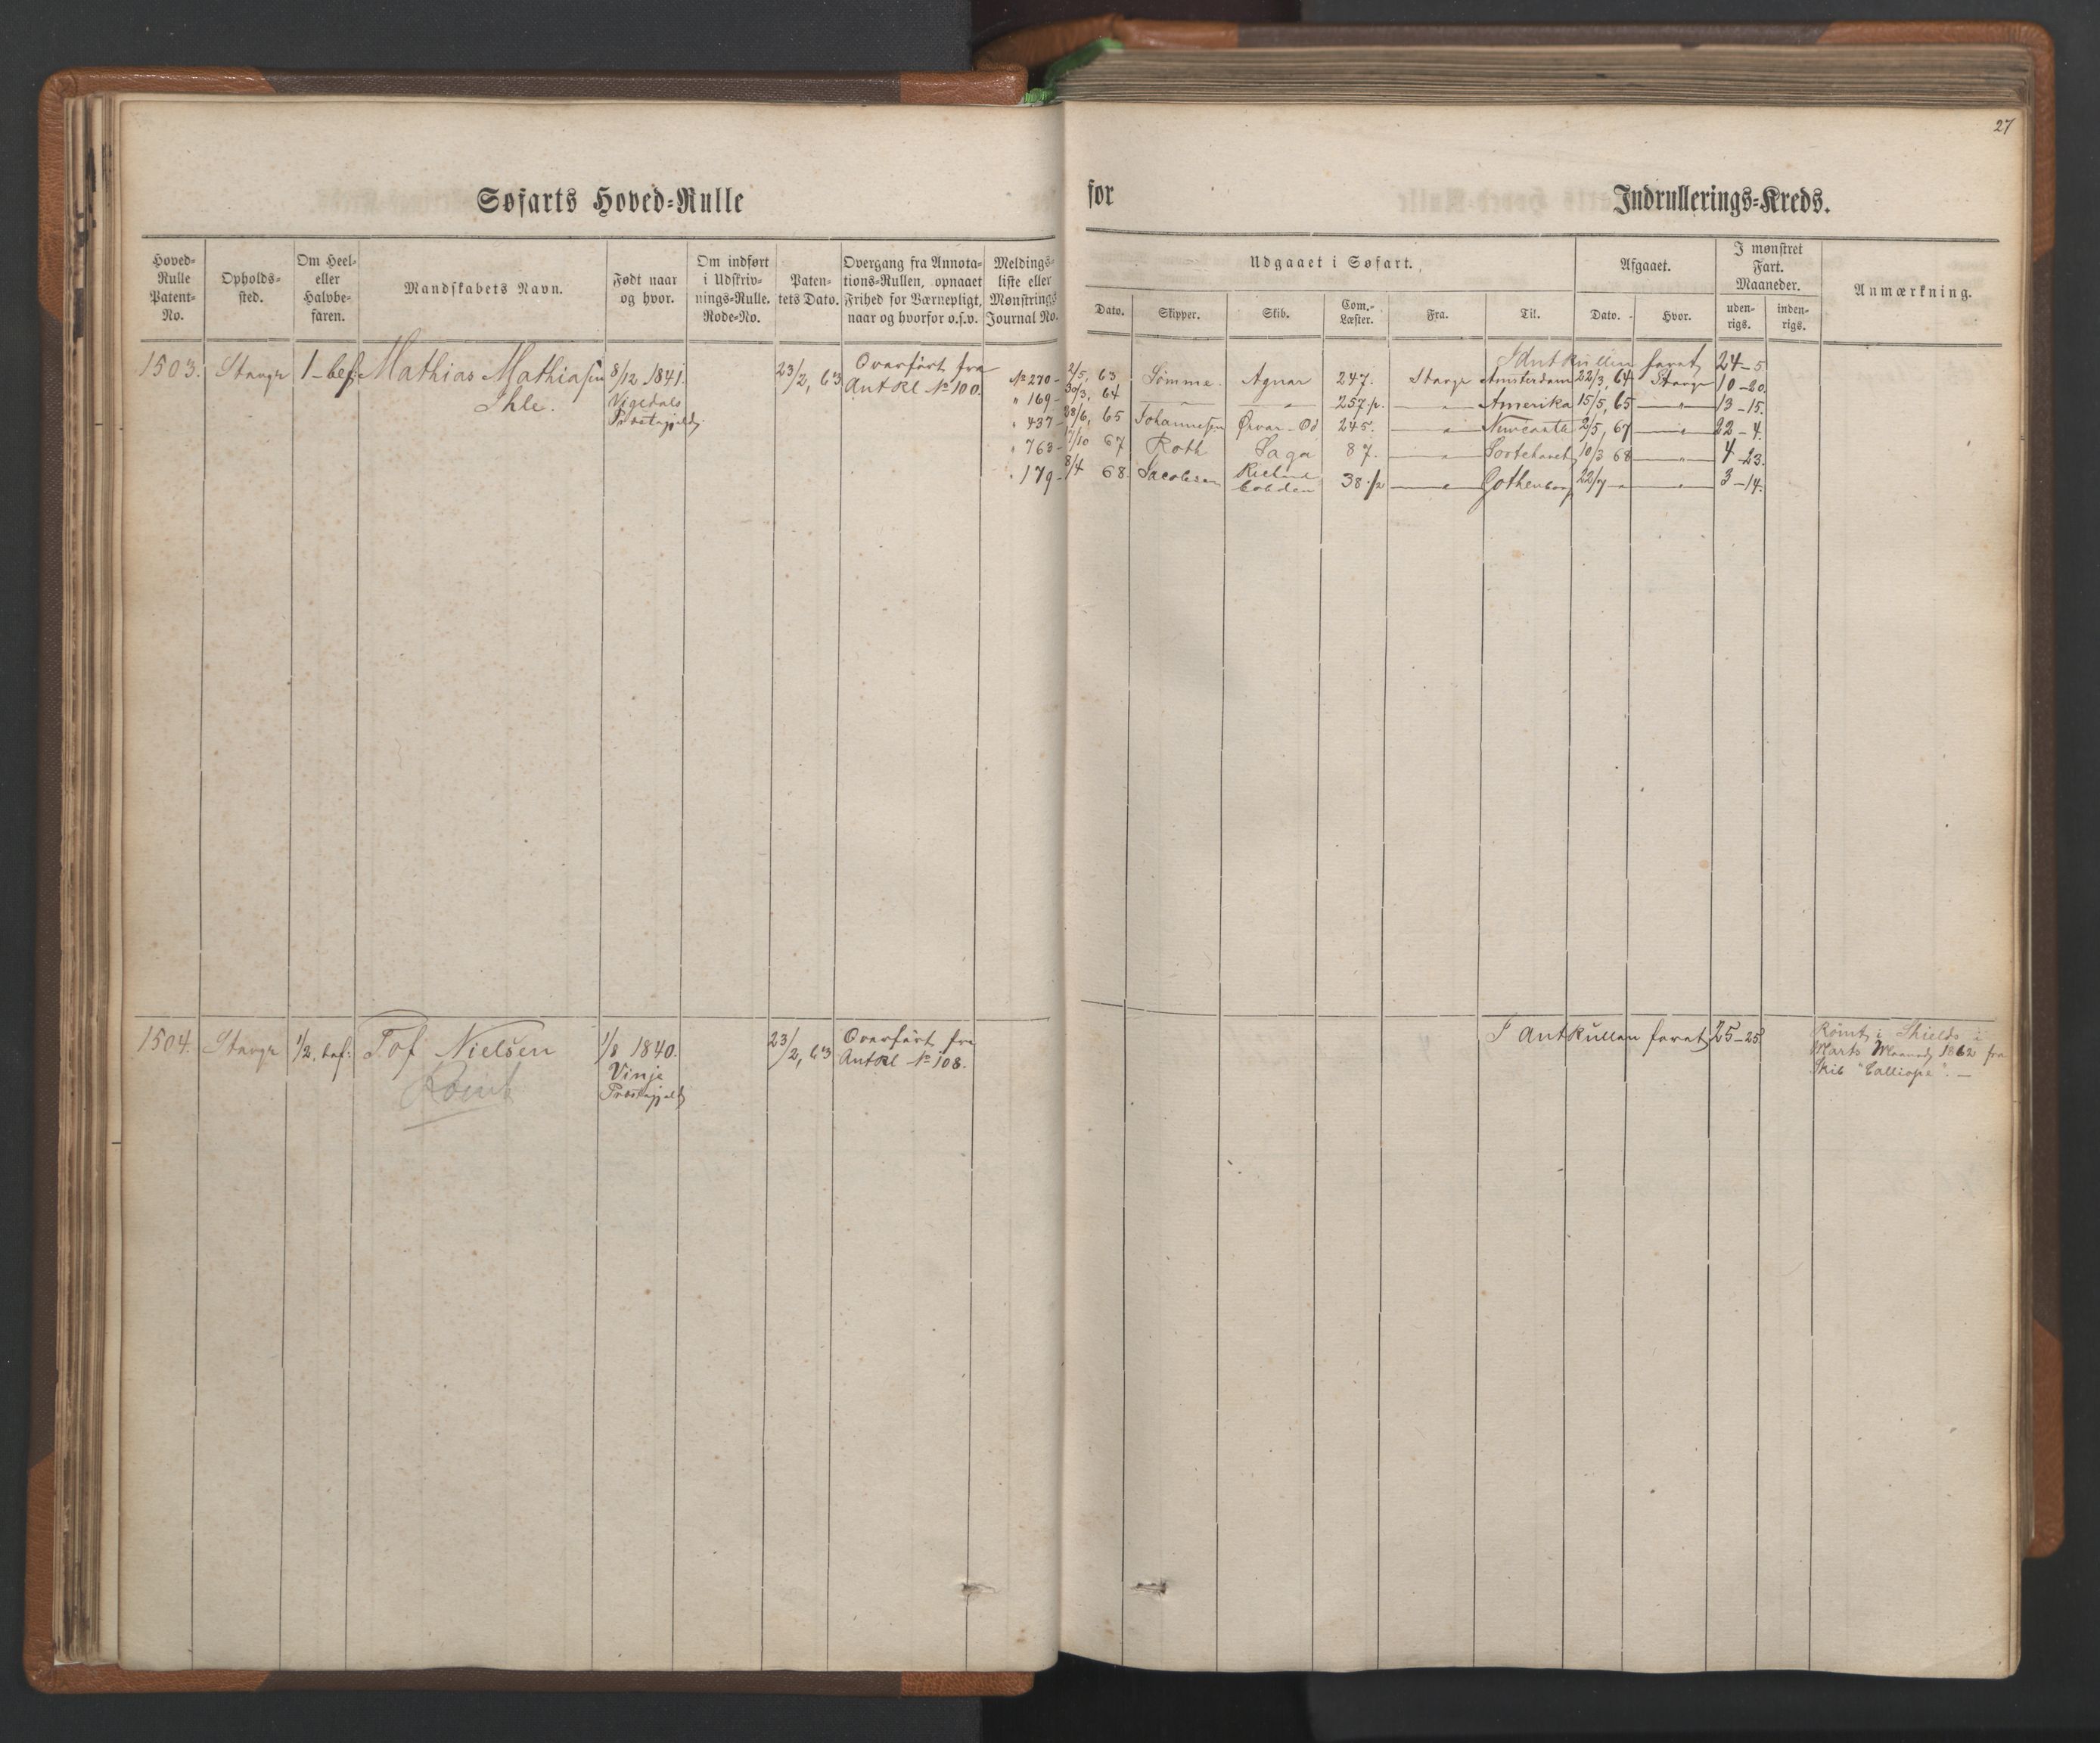 27
Søfarts Hoved=Rulle
for
Indrullerings=Kreds.
Hoved=Rulle Patent=No.
Opholds=sted.
Om Heel= eller Halvbe=faren.
Mandskabets Navn.
Født naar og hvor.
Om indført i Udskriv=nings=Rulle. Rode=No.
Paten=tets Dato.
Overgang fra Annota=tions=Rullen, opnaaet Frihed for Værnepligt, naar og hvorfor o.s.v.
Meldings=liste eller Mønstrings Journal No.
Udgaaet i Søfart.
Dato.
Skipper.
Skib.
Com.=Læster.
Fra.
Til.
Afgaaet.
Dato.
Hvor.
I mønstret Fart. Maaneder.
uden=rigs.
inden=rigs.
Anmærkning.
1503. Stavgr 1-bef. Mathias Mathiasen 8/12 1841. 23/2, 63 Overført fra
Ihle. Vigedals AntRl No 100.
Præstegjeld
I AntRullen faret 24-5
No 270- 2/5, 63 Sømme. Agnar 247. Stavgr Amsterdam 22/3, 64 Stavgr 10-20.
" 169- 30/3, 64 — " — 257. — " — Amerika 15/5, 65 — " — 13-15.
" 437- 28/6, 65 Johannesen Ørvar-Od 245. — " — Newcastle 2/5, 67 — " — 22-4.
" 763- 17/10 67 Roth Saga 87. — " — Sortehavet 10/3 68 — " — 4-23.
" 179- 8/4 68. Jacobsen Richard Cobden 38 1/2 — " — Gothenborg 22/7 — " — 3-14.
1504. Stavgr 1/2. bef: Tof Nielsen 1/8 1840. 23/2, 63 Overført fra
Vinje AntRl No 108.
Præstegjeld
Rømt
I AntRullen faret 25-25
Rømt i Shields i
Marts Maaned 1862 fra
Skib "Calliope". —